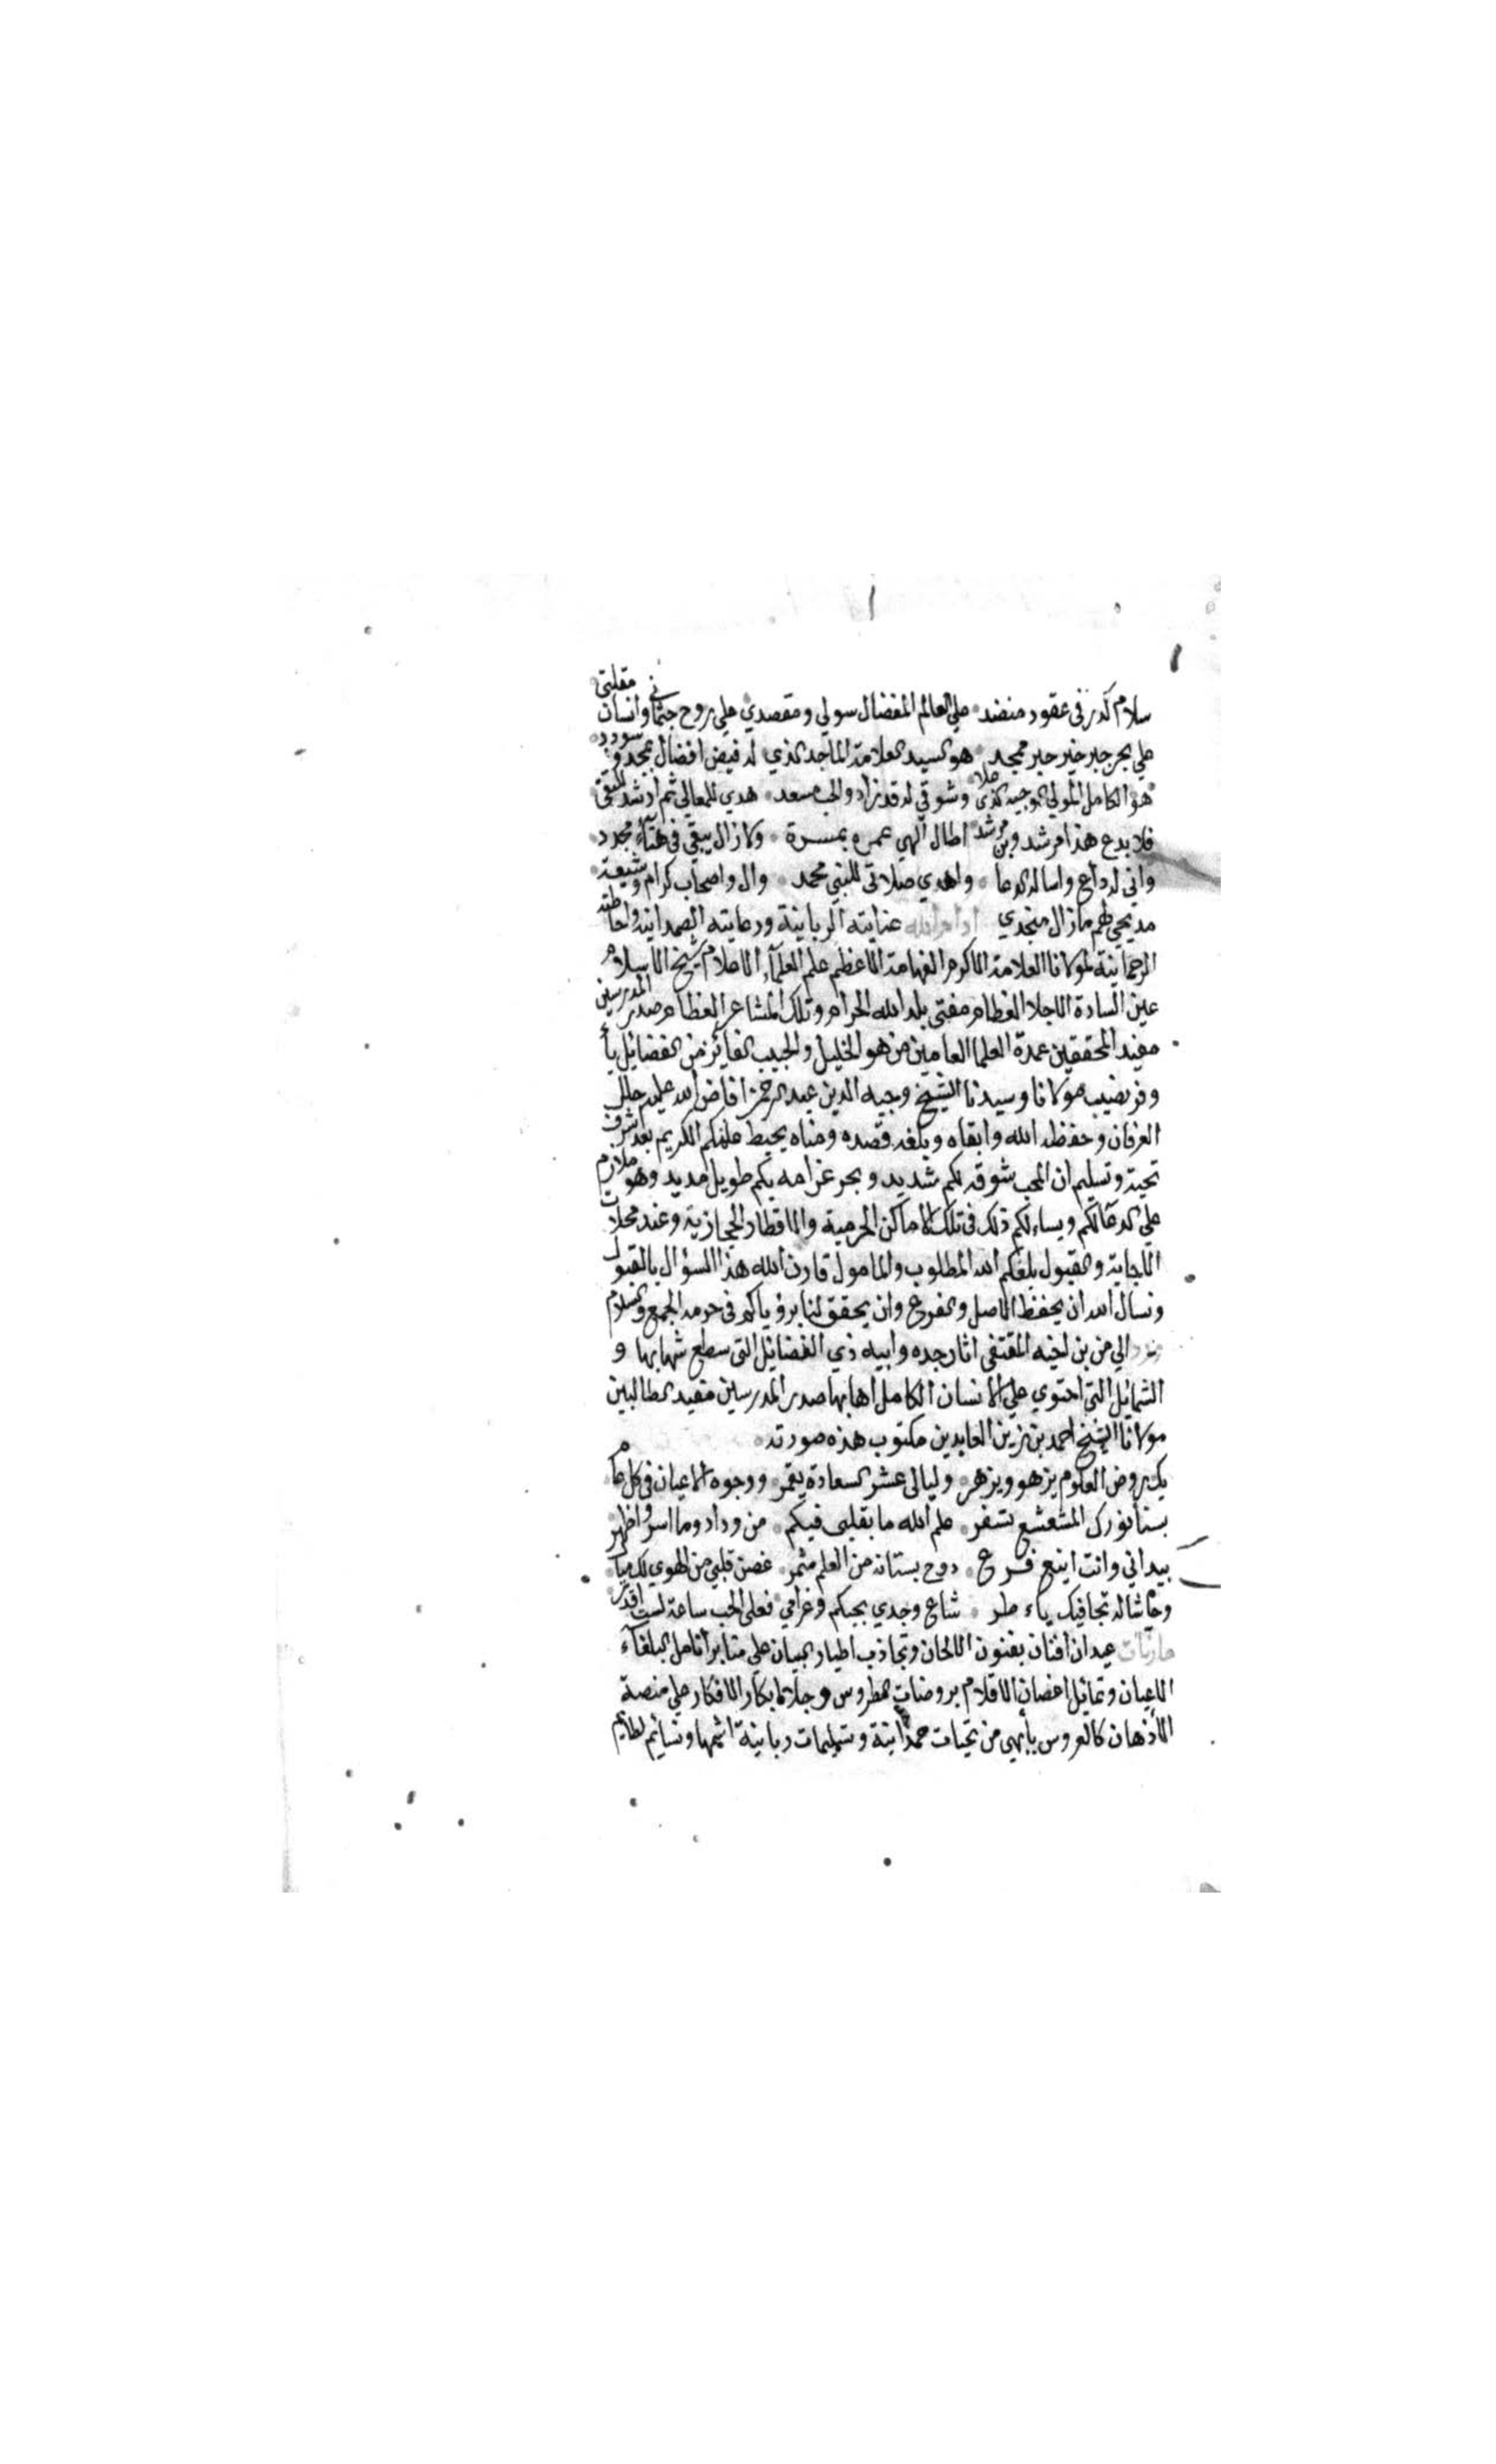 سلام كدر في عقود منضد علي العالم المفضال سولي ومقصدي علي روح جثماني وانسان مقلتي
علي بحر جبر خير حبر ممجد هو السيد العلامة الماجد الذي له فيض افضال بمجد وسودد
هو الكامل المولي الوجيه الذي علا وشوقي له قد زاد والحب مسعد هدي للمعالي ثم ارشد للتقي
فلا بدع هذا مرشد وبن مرشد اطال الهي عمره بمسرة ولا زال يبقي في هناء مجدد
واني له داع واساله الدعا واهدي صلاتي للنبي محمد وال واصحاب كرام وشيعة
مديحي لهم مازال منجدي ادام الله عنايته الربانية ورعايته الصمدانية واحاطته
الرحمانية لمولانا العلامة الاكرم الفهامة الاعظم علم العلماء الاعلام شيخ الاسلام
عين السادة الاجلا العظام مفتي بلد الله الحرام وتلك المشاعر العظام صدر المدرسين
مفيد المحققين عمدة العلما العاملين من هو الخليل والحبيب الفائز من الفضائل با
وفر نصيب مولانا وسيدنا الشيخ وجيه الدين عبد الرحمن افاض الله عليه حلل
العرفان وحفظه الله وابقاه وبلغه قصده ومناه يحيط علمكم الكريم بعد شرف
تحية وتسليم ان المحب شوقه لكم شديد وبحر غرامه بكم طويل مديد وهو ملازم
علي الدعا لكم ويساءلكم ذلك في تلك الاماكن الحرمية والاقطار الحجازية وعند محلات
الاجابة والقبول بلغكم الله المطلوب والمامول قارن الله هذا السؤال بالقبول
ونسال الله ان يحفظ الاصل والفرع وان يحقق لنا برؤياكم في حرمه الجمع والسلام
الي من بن اخيه المقتفي اثار جده وابيه ذي الفضائل التي سطع شهابها و
الشمائل التي احتوي علي الانسان الكامل اهابها صدر المدرسين مفيد الطالبين
مولانا الشيخ احمد بن زين العابدين مكتوب هذه صورته
بك روض العلوم يزهو ويزهر وليالي عشر السعادة يقمر ووجوه الاعيان في كل عام
بسنا نورك المشعشع تسفر علم الله ما بقلبي فيكم من وداد وما اسر واظهر
بيد اني وانت اينع فرع دوح بستانه من العلم مثمر غصن قلبي من الهوي لك ميال
وحاشا له تجافيك ياء طر شاع وجدي بحبكم وغرامي فعلي الحب ساعة لست اقدر
عيدان افنان بفنون الالحان وتجاذب اطيار البيان علي منابر انامل البلغاء
الاعيان وتمائل اغصان الاقلام بروضات الطروس وجلا ابكار الافكار علي منصة
الاذهان كالعروس بابهي من تحيات حمدانية وتسليمات ربانية اشمها ونسائم لطائم